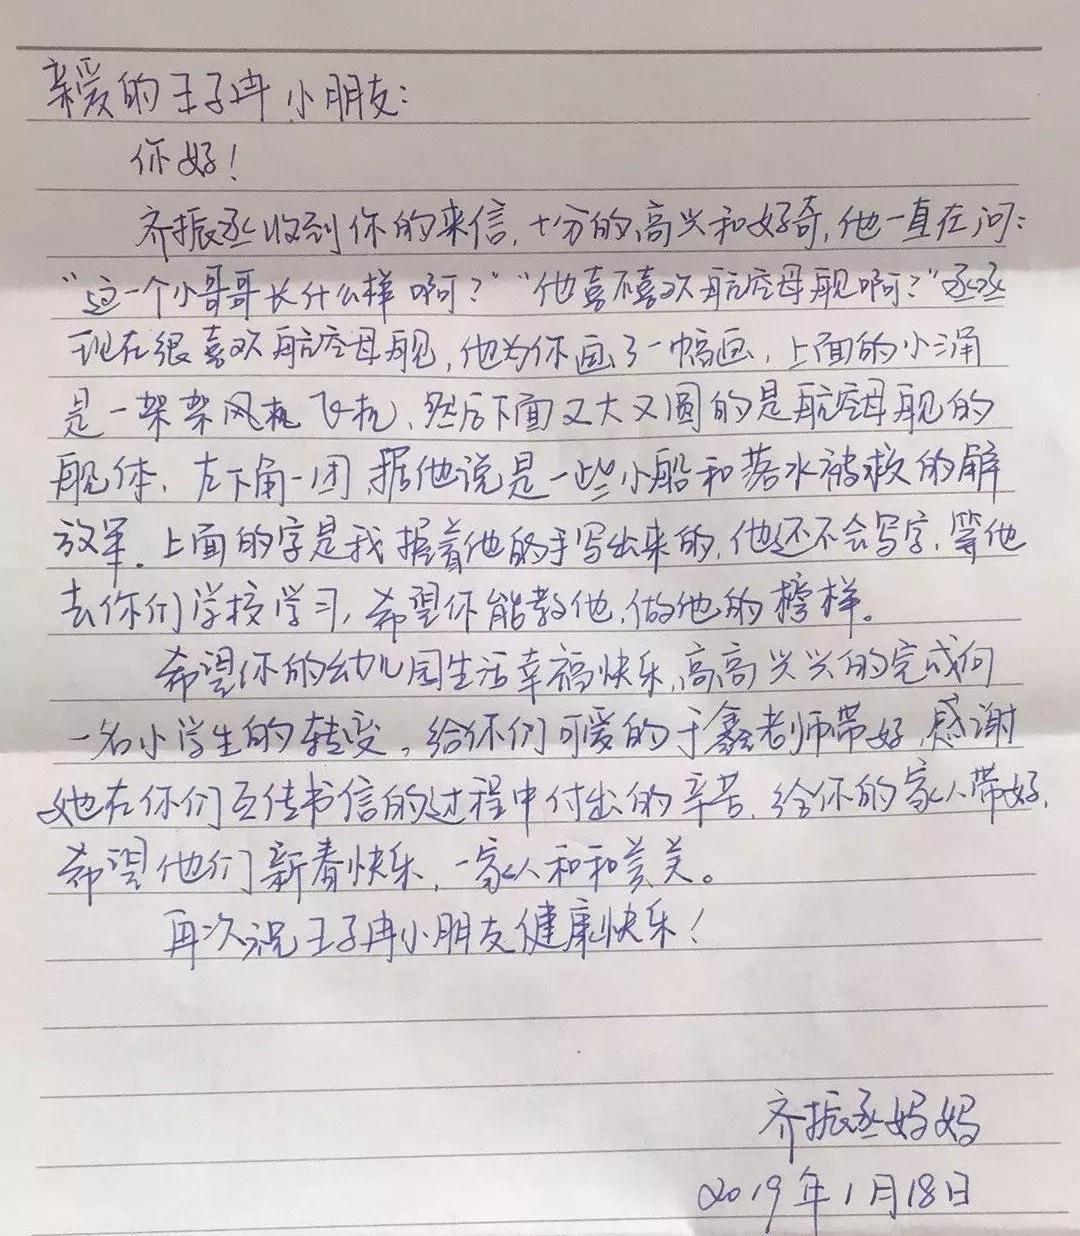 亲爱的王子冉小朋友:
你好!
齐振丞收到你的来信,十分的高兴和好奇,他一直在问:
“这一个小哥哥长什么样啊?”“他喜不喜欢航空母舰啊?”丞丞
现在很喜欢航空母舰,他为你画了一幅画,上面的小三角
是一架架风机飞机、然后下面又大又圆的是航空母舰的
舰体、左下角一团,据他说是一些小船和落水被救的解
放军.上面的字是我握着他的手写出来的,他还不会写字,等他
去你们学校学习,希望你能教他,做他的榜样。
希望你的幼儿园生活幸福快乐,高高兴兴的完成向
一名小学生的转变,给你们可爱的于鑫老师带好,感谢
她在你们互传书信的过程中付出的辛苦,给你的家人带好,
希望他们新春快乐,一家人和和美美。
再次祝王子冉小朋友健康快乐!
齐振丞妈妈
2019年1月18日